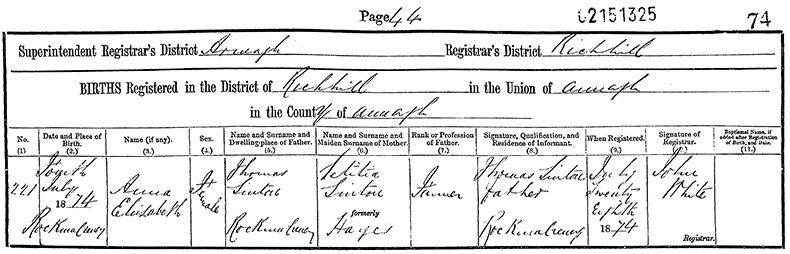 Page 44 02151325 74
Superintendent Registrar's District Armagh Registrar's District Richhill
BIRTHS Registered in the District of Richhill in the Union of Armagh
in the County of Armagh
No. (1.) Date and Place of Birth. (2.) Name (if any). (3.) Sex. (4.) Name and Surname and Dwelling-place of Father. (5.) Name and Surname and Maiden Surname of Mother. (6.) Rank or Profession of Father. (7.) Signature, Qualification, and Residence of Informant. (8.) When Registered. (9.) Signature of Registrar. (10.) Baptismal Name, if added after Registration of Birth, and Date. (11.)
221 Fourth July 1874 Rockmacreeny Anna Elizabeth Female Thomas Sinton Rockmacreeny Letitia Sinton formerly Hayes Farmer Thomas Sinton father Rockmacreeny July Twenty Eighth 1874 John White Registrar.